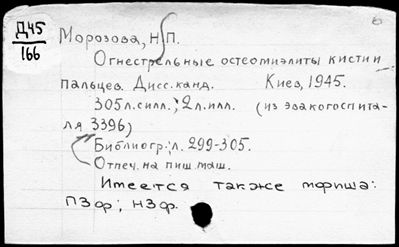 Д45
166
Морозова, Н.П.
Огнестрельные остеомиэлиты кисти и
пальцев. Дисс. канд. Киев, 1945.
305 л. силл.; 2 л. илл. (из эвакогоспита-
ля 3396)
Библиогр.: л. 299-305.
Отпеч. на пиш. маш.
Имеется также мфиша:
ПЗф; НЗф.